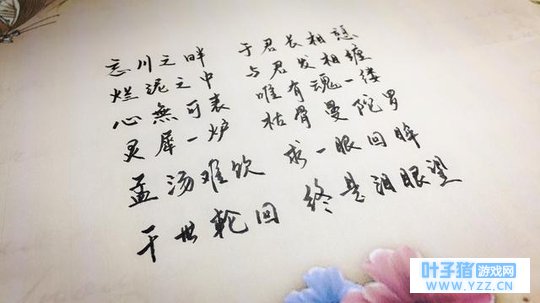 忘川之畔 于君长相憩
烂泥之中 与君发相缠
心無可表 唯有魂一缕
灵犀一炉 枯骨曼陀罗
孟汤难饮 求一眼回眸
千世轮回 终是泪眼望
叶子猪游戏网
WWW.YZZ.CN